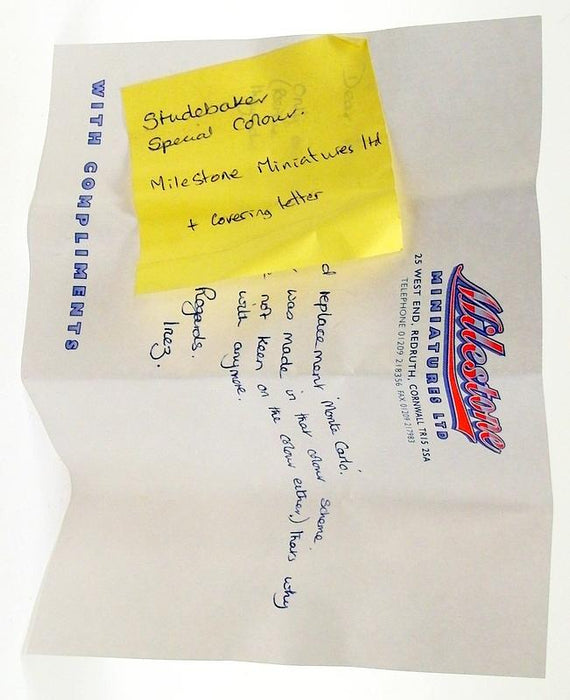 Studebaker
Special Colour.
MileStone Miniatures ltd
+ covering letter
Milestone
MINIATURES LTD
25 WEST END, REDRUTH, CORNWALL TR15 2SA
TELEPHONE 01209 218356 FAX 01209 217983
Dear
On
d replacement 'Monte Carlo'.
was made in that colour scheme.
not keen on the colour either.) thats why
with anymore.
Regards.
Inez.
WITH COMPLIMENTS